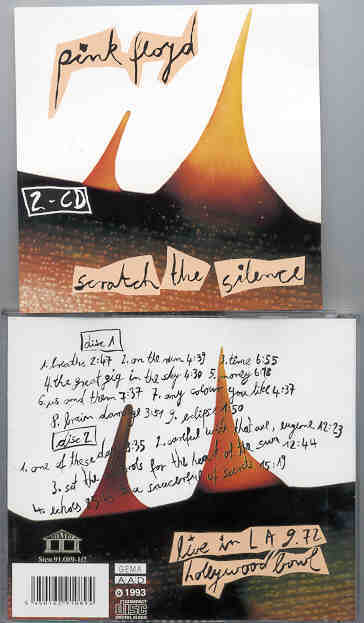 pink floyd
2-CD
scratch the silence
disc 1
1. breathe 2:47 2. on the run 4:39 3. time 6:55
4. the great gig in the sky 4:30 5. money 6:78
6. us and them 7:37 7. any colour you like 4:37
8. brain damage 3:51 9. eclipse 1:50
disc 2
1. one of these days 8:35 2. careful with that axe, eugene 12:23
3. set the controls for the heart of the sun 12:44
4. echoes 5. a saucerful of secrets 15:19
live in LA 9.72
hollywood bowl
Siew 91.089-1/2
GEMA
AAD
1993
COMPACT
disc
DIGITAL AUDIO